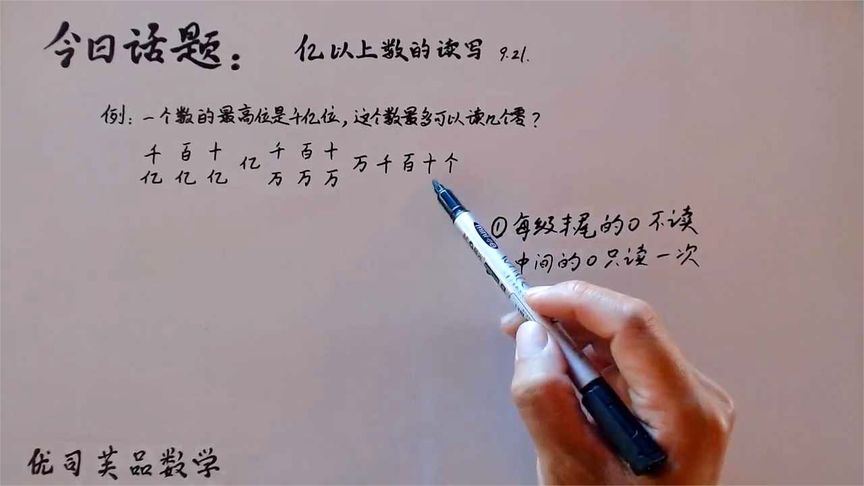 今日话题: 亿以上数的读写 9.21.
例: 一个数的最高位是千亿位, 这个数最多可以读几个零?
千 百 十 亿 千 百 十 万 千 百 十 个
亿 亿 亿 万 万 万
①每级末尾的0不读
中间的0只读一次
优司芙品数学